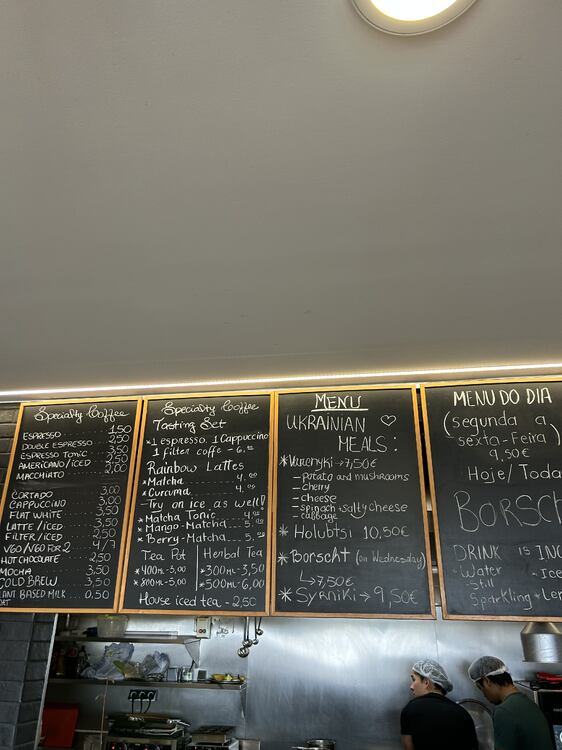 Specialty Coffee
ESPRESSO ........ 1,50
DOUBLE ESPRESSO .... 2,50
ESPRESSO TONIC .... 3,50
AMERICANO/ICED ... 2,00
MACCHIATO
CORTADO ...... 3,00
CAPPUCCINO ..... 3,00
FLAT WHITE ..... 3,50
LATTE/ICED ..... 3,50
FILTER/ICED ..... 2,50
V60/V60 FOR 2 .... 4/7
HOT CHOCOLATE .... 2,50
MOCHA ..... 3,50
COLD BREW ..... 3,50
PLANT BASED MILK .. 0,50
OAT
Specialty Coffee
Tasting Set
*1 espresso. 1 Cappuccino
1 filter coffe - 6.
Rainbow Lattes
*Matcha ...... 4.00
*Curcuma ...... 4.00
-Try on ice as well!
*Matcha Tonic ... 4.
*Mango-Matcha ... 5.
*Berry-Matcha ... 5.
Tea Pot
*400ML-5,00
*800ML-5,00
Herbal Tea
*300ML-3,50
*500ML-6,00
House iced tea - 2,50
MENU
UKRAINIAN ♡
MEALS:
*Varenyki → 7,50€
-Potato and mushrooms
-Cherry
-cheese
-spinach + salty cheese
-cabbage
*Holubtsi 10,50€
*Borscht (on Wednesday)
↳ 7,50€
*Syrniki → 9,50€
MENU DO DIA
(segunda a
sexta-Feira)
9,50€
Hoje/Toda
BORSCH
DRINK IS INC
-Water
-still
Sparkling
-Ice
-Le